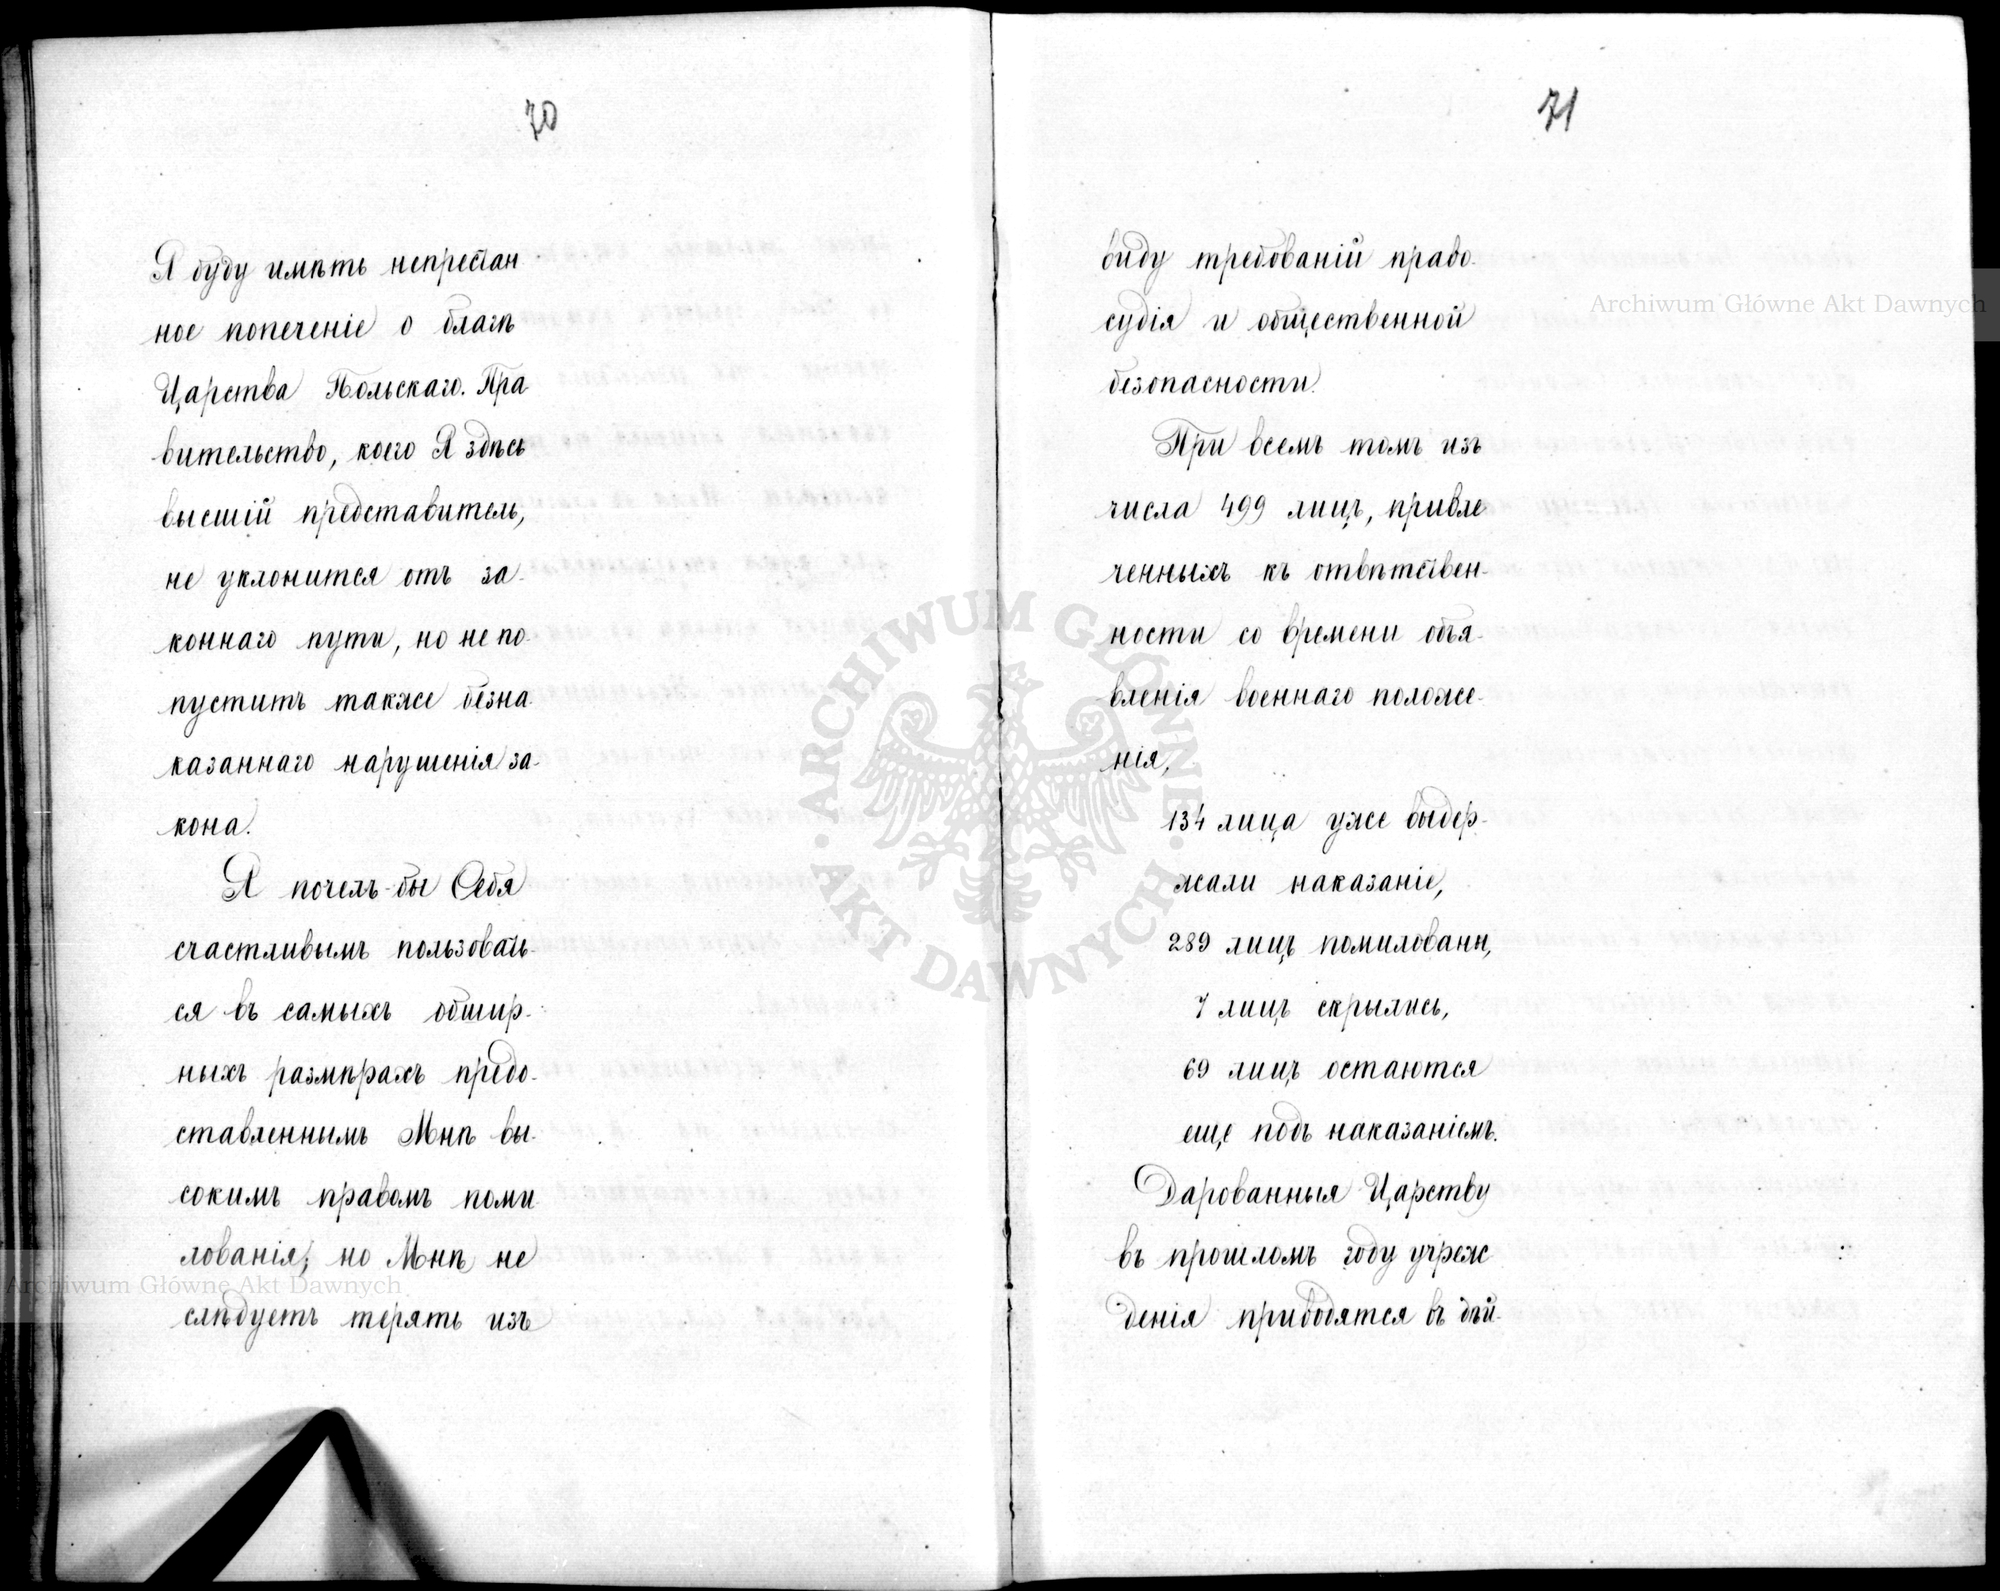 70
Я буду имѣть непрестан
ное попеченіе о благѣ
Царства Польскаго. Пра
вительство, коего Я здѣсь
высшій представитель,
не уклонится отъ за-
коннаго пути, но не по-
пуститъ также безна
казаннаго нарушенія за-
кона.
Я почелъ-бы Себя
счастливымъ пользовать-
ся въ самыхъ обшир-
ныхъ размѣрахъ предо-
ставленнымъ Мнѣ вы-
сокимъ правомъ поми
лованія; но Мнѣ не
слѣдуетъ терять изъ
71
виду требованій право-
судія и общественной
безопасности.
При всемъ томъ изъ
числа 499 лицъ, привле
ченныхъ къ отвѣтствен-
ности со времени объя-
вленія военнаго положе-
нія,
134 лица уже выдер-
жали наказаніе,
289 лицъ помилованы,
7 лицъ скрылись,
69 лицъ остаются
еще подъ наказаніемъ.
Дарованныя Царству
въ прошломъ году учреж
денія приводятся въ дѣй-
Archiwum Główne Akt Dawnych
Archiwum Główne Akt Dawnych
ARCHIWUM GŁÓWNE
· AKT DAWNYCH ·